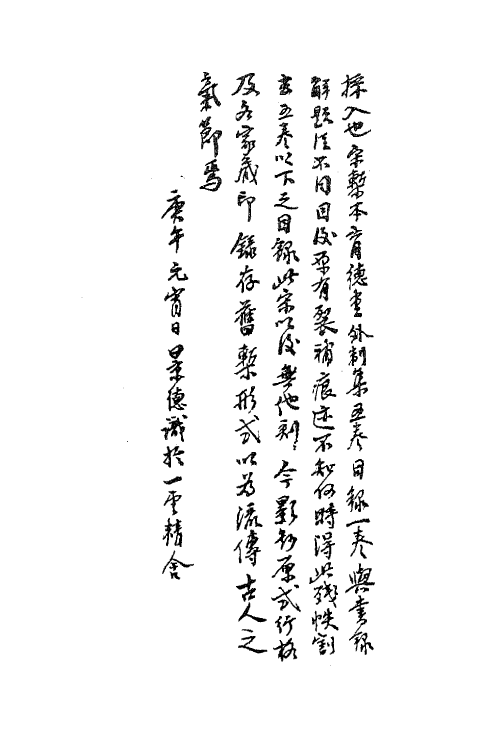 採入也宋槧本育德堂外制集五卷目録一卷與書録
解題江不同目後原有裂補痕迹不知何時得此殘帙割
去五卷以下之目録此宋以後無他刻今影鈔原式行格
及各家藏印錄存舊槧形式以為流傳古人之
氣節焉
庚午元宵日景德識於一雲精舍